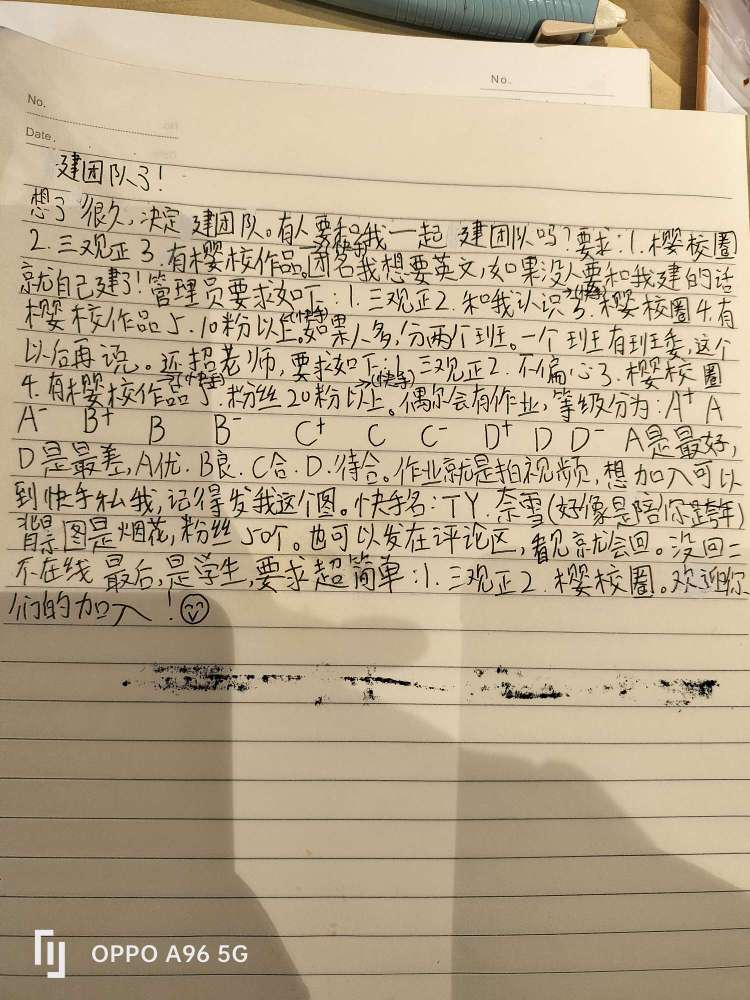 No.
No.
Date.
建团队了!
想了很久,决定建团队。有人要和我一起建团队吗?要求:1.樱校圈
2.三观正3.有樱校作品。团名我想要英文,如果没人要和我建的话
→(快手)
就自己建了!管理员要求如下:1.三观正2.和我认识3.樱校圈4.有
樱校作品5.10粉以上。如果人多,分两个班。一个班有班委,这个
(快手)
以后再说。还招老师,要求如下:1.三观正2.不偏心3.樱校圈
4.有樱校作品5.粉丝20粉以上。偶尔会有作业,等级分为:A⁺ A
(快手) →(快手)
A⁻ B⁺ B B⁻ C⁺ C C⁻ D⁺ D D⁻ A是最好,
D是最差,A优.B良.C合.D.待合。作业就是拍视频,想加入可以
到快手私我,记得发我这个图。快手名:TY.奈雪(好像是陪你跨年)
背景图是烟花,粉丝50个。也可以发在评论区,看见就会回。没回=
不在线最后,是学生,要求超简单:1.三观正2.樱校圈。欢迎你
们的加入!
OPPO A96 5G